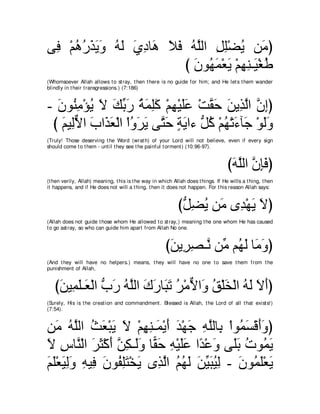 (مَن يُضْلِلِ اللَّهُ فَلَا هَادِيَ لَهُ وَيَذَرُهُمْ فِي
طُغْيَـنِهِمْ يَعْمَهُونَ )
(Whomsoever Allah allows to stray, then there is no guide for him; and He lets them wander
blindly in their transgressions.) (7:186)
(إِنَّ الَّذِينَ حَقَّتْ عَلَيْهِمْ كَلِمَةُ رَبِّكَ لَا يُؤْمِنُونَ -
وَلَوْ جَآءَتْهُمْ كُلُّ ءايَةٍ حَتَّى يَرَوُاْ الْعَذَابَ الاٌّلِيمَ )
(Truly! Those deserving the Word (wrath) of your Lord will not believe, even if every sign
should come to them - until they see the painful torment) (10:96-97).
(فَإِنَّ اللَّهَ)
(then verily, Allah) meaning, this is the way in which Allah does things. If He wills a thing, then
it happens, and if He does not will a thing, then it does not happen. For this reason Allah says:
(لَا يَهْدِى مَن يُضِلُّ)
(Allah does not guide those whom He allowed to stray,) meaning the one whom He has caused
to go astray, so who can guide him apart from Allah No one.
(وَمَا لَهُم مِّن نَّـصِرِينَ)
(And they will have no helpers.) means, they will have no one to save them from the
punishment of Allah,
(أَلاَ لَهُ الْخَلْقُ وَالاٌّمْرُ تَبَارَكَ اللَّهُ رَبُّ الْعَـلَمِينَ)
(Surely, His is the creation and commandment. Blessed is Allah, the Lord of all that exists!)
(7:54).
(وَأَقْسَمُواْ بِاللَّهِ جَهْدَ أَيْمَـنِهِمْ لَا يَبْعَثُ اللَّهُ مَن
يَمُوتُ بَلَى وَعْدًا عَلَيْهِ حَقًّا وَلـكِنَّ أَكْثَرَ النَّاسِ لَا
يَعْلَمُونَ - لِيُبَيِّنَ لَهُمُ الَّذِي يَخْتَلِفُونَ فِيهِ وَلِيَعْلَمَ